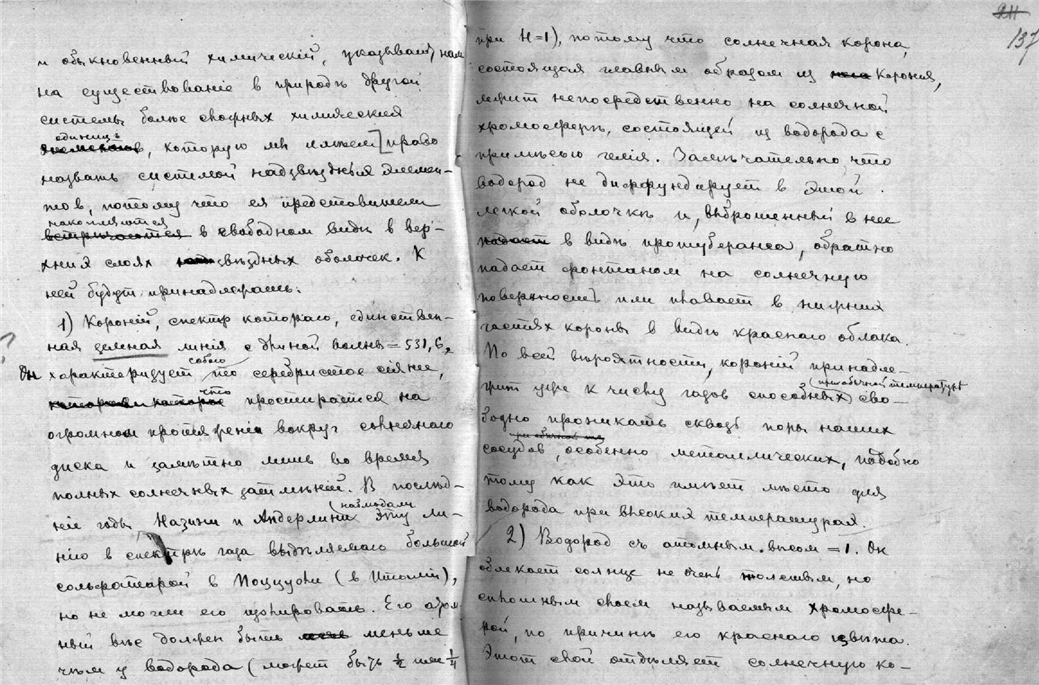 и обыкновенный химический, указывает нам
на существованіе в природѣ другой
системы болѣе сложных химических
единицъ
элементов, которую мы имѣем право
назвать системой надзвѣздных элемен-
тов, потому что ея представители
накопляются
встрѣчаются в свободном видѣ в вер-
хних слоях звѣздных оболочек. К
ней будут принадлежать:
1) Короній, спектр котораго, единствен-
ная зеленая линія с длиной волны = 531,6,
собою
Он характеризует то серебристое сіяніе,
что
которое простирается на
огромном протяженіи вокруг солнечнаго
диска и замѣтно лишь во время
полных солнечных затменій. В послѣд-
наблюдали
ніе годы Назини и Андерлини эту ли-
нію в спектрѣ газа выдѣляемаго большой
сольфатарой в Поццуоли (в Италіи),
но не могли его изолировать. Его атом-
ный вѣс должен быть меньше
чѣм у водорода (может быть ½ или ¼
ЯН
137
при H=1), потому что солнечная корона,
состоящая главным образом из Коронія,
лежит непосредственно на солнечной
хромосферѣ, состоящей из водорода с
примѣсью гелія. Замѣчательно что
водород не диффундирует в этой
легкой оболочкѣ и, выброшенный в нее
падает в видѣ протуберанса, обратно
падает фонтаном на солнечную
поверхность или плавает в нижних
частях короны в видѣ краснаго облака.
По всей вѣроятности, короній принадле-
при обычной температурѣ
жит уже к числу газов способных сво-
бодно проникать сквозь поры наших
при обычной те
сосудов, особенно металлических, подобно
тому как это имѣет мѣсто для
водорода при высоких температурах.
2) Водород съ атомным вѣсом = 1. Он
облекает солнце не очень толстым, но
сплошным слоем называемым хромосфе-
рой, по причинѣ его краснаго цвѣта.
Этот слой отдѣляет солнечную ко-